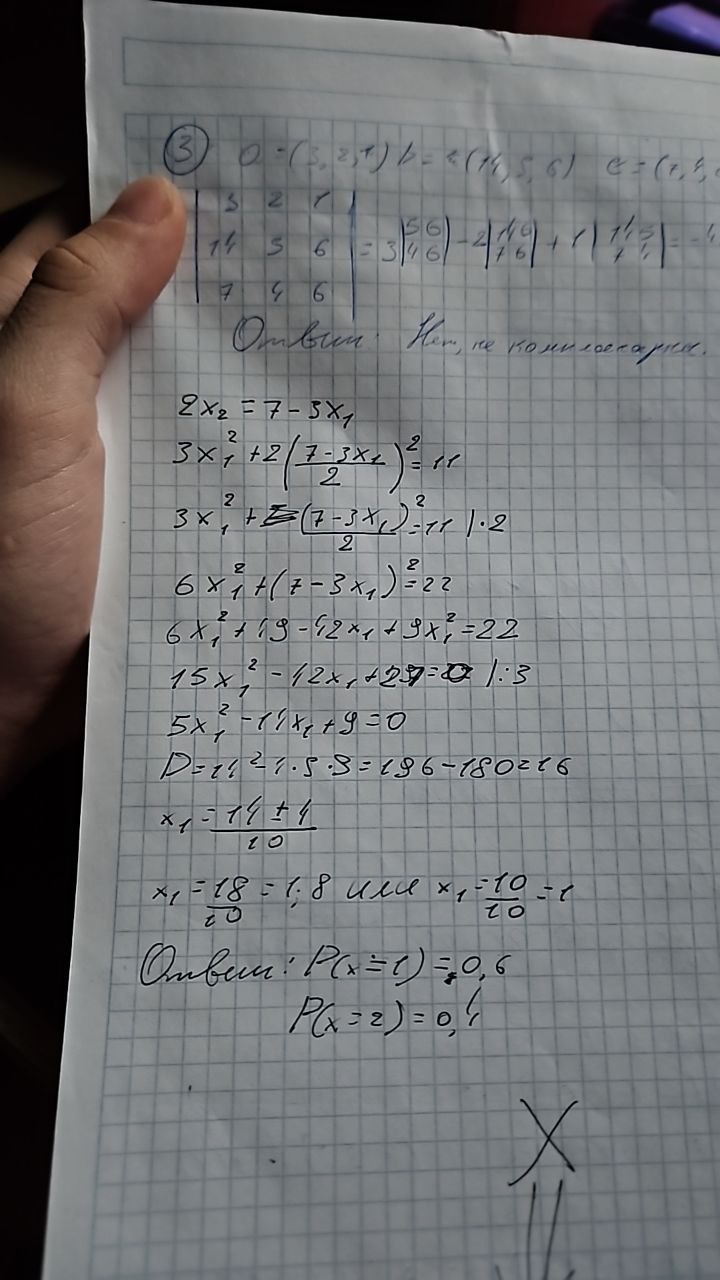 ③ a = (3, 2, 1) b = (14, 5, 6) c = (7, 4,
| 3 2 1 |
| 14 5 6 | = 3 |5 6 4 6| - 2 |14 6 7 6| + 1 |14 5 7 4| = -4
| 7 4 6 |
Ответ: Нет, не компланарны.
2x₂ = 7 - 3x₁
3x₁² + 2((7 - 3x₁)/2)² = 11
3x₁² + (7 - 3x₁)²/2 = 11 | · 2
6x₁² + (7 - 3x₁)² = 22
6x₁² + 49 - 42x₁ + 9x₁² = 22
15x₁² - 42x₁ + 27 = 0 | : 3
5x₁² - 14x₁ + 9 = 0
D = 14² - 4 · 5 · 9 = 196 - 180 = 16
x₁ = (14 ± 4)/10
x₁ = 18/10 = 1,8 или x₁ = 10/10 = 1
Ответ: P(x = 1) = 0,6
P(x = 2) = 0,4
X